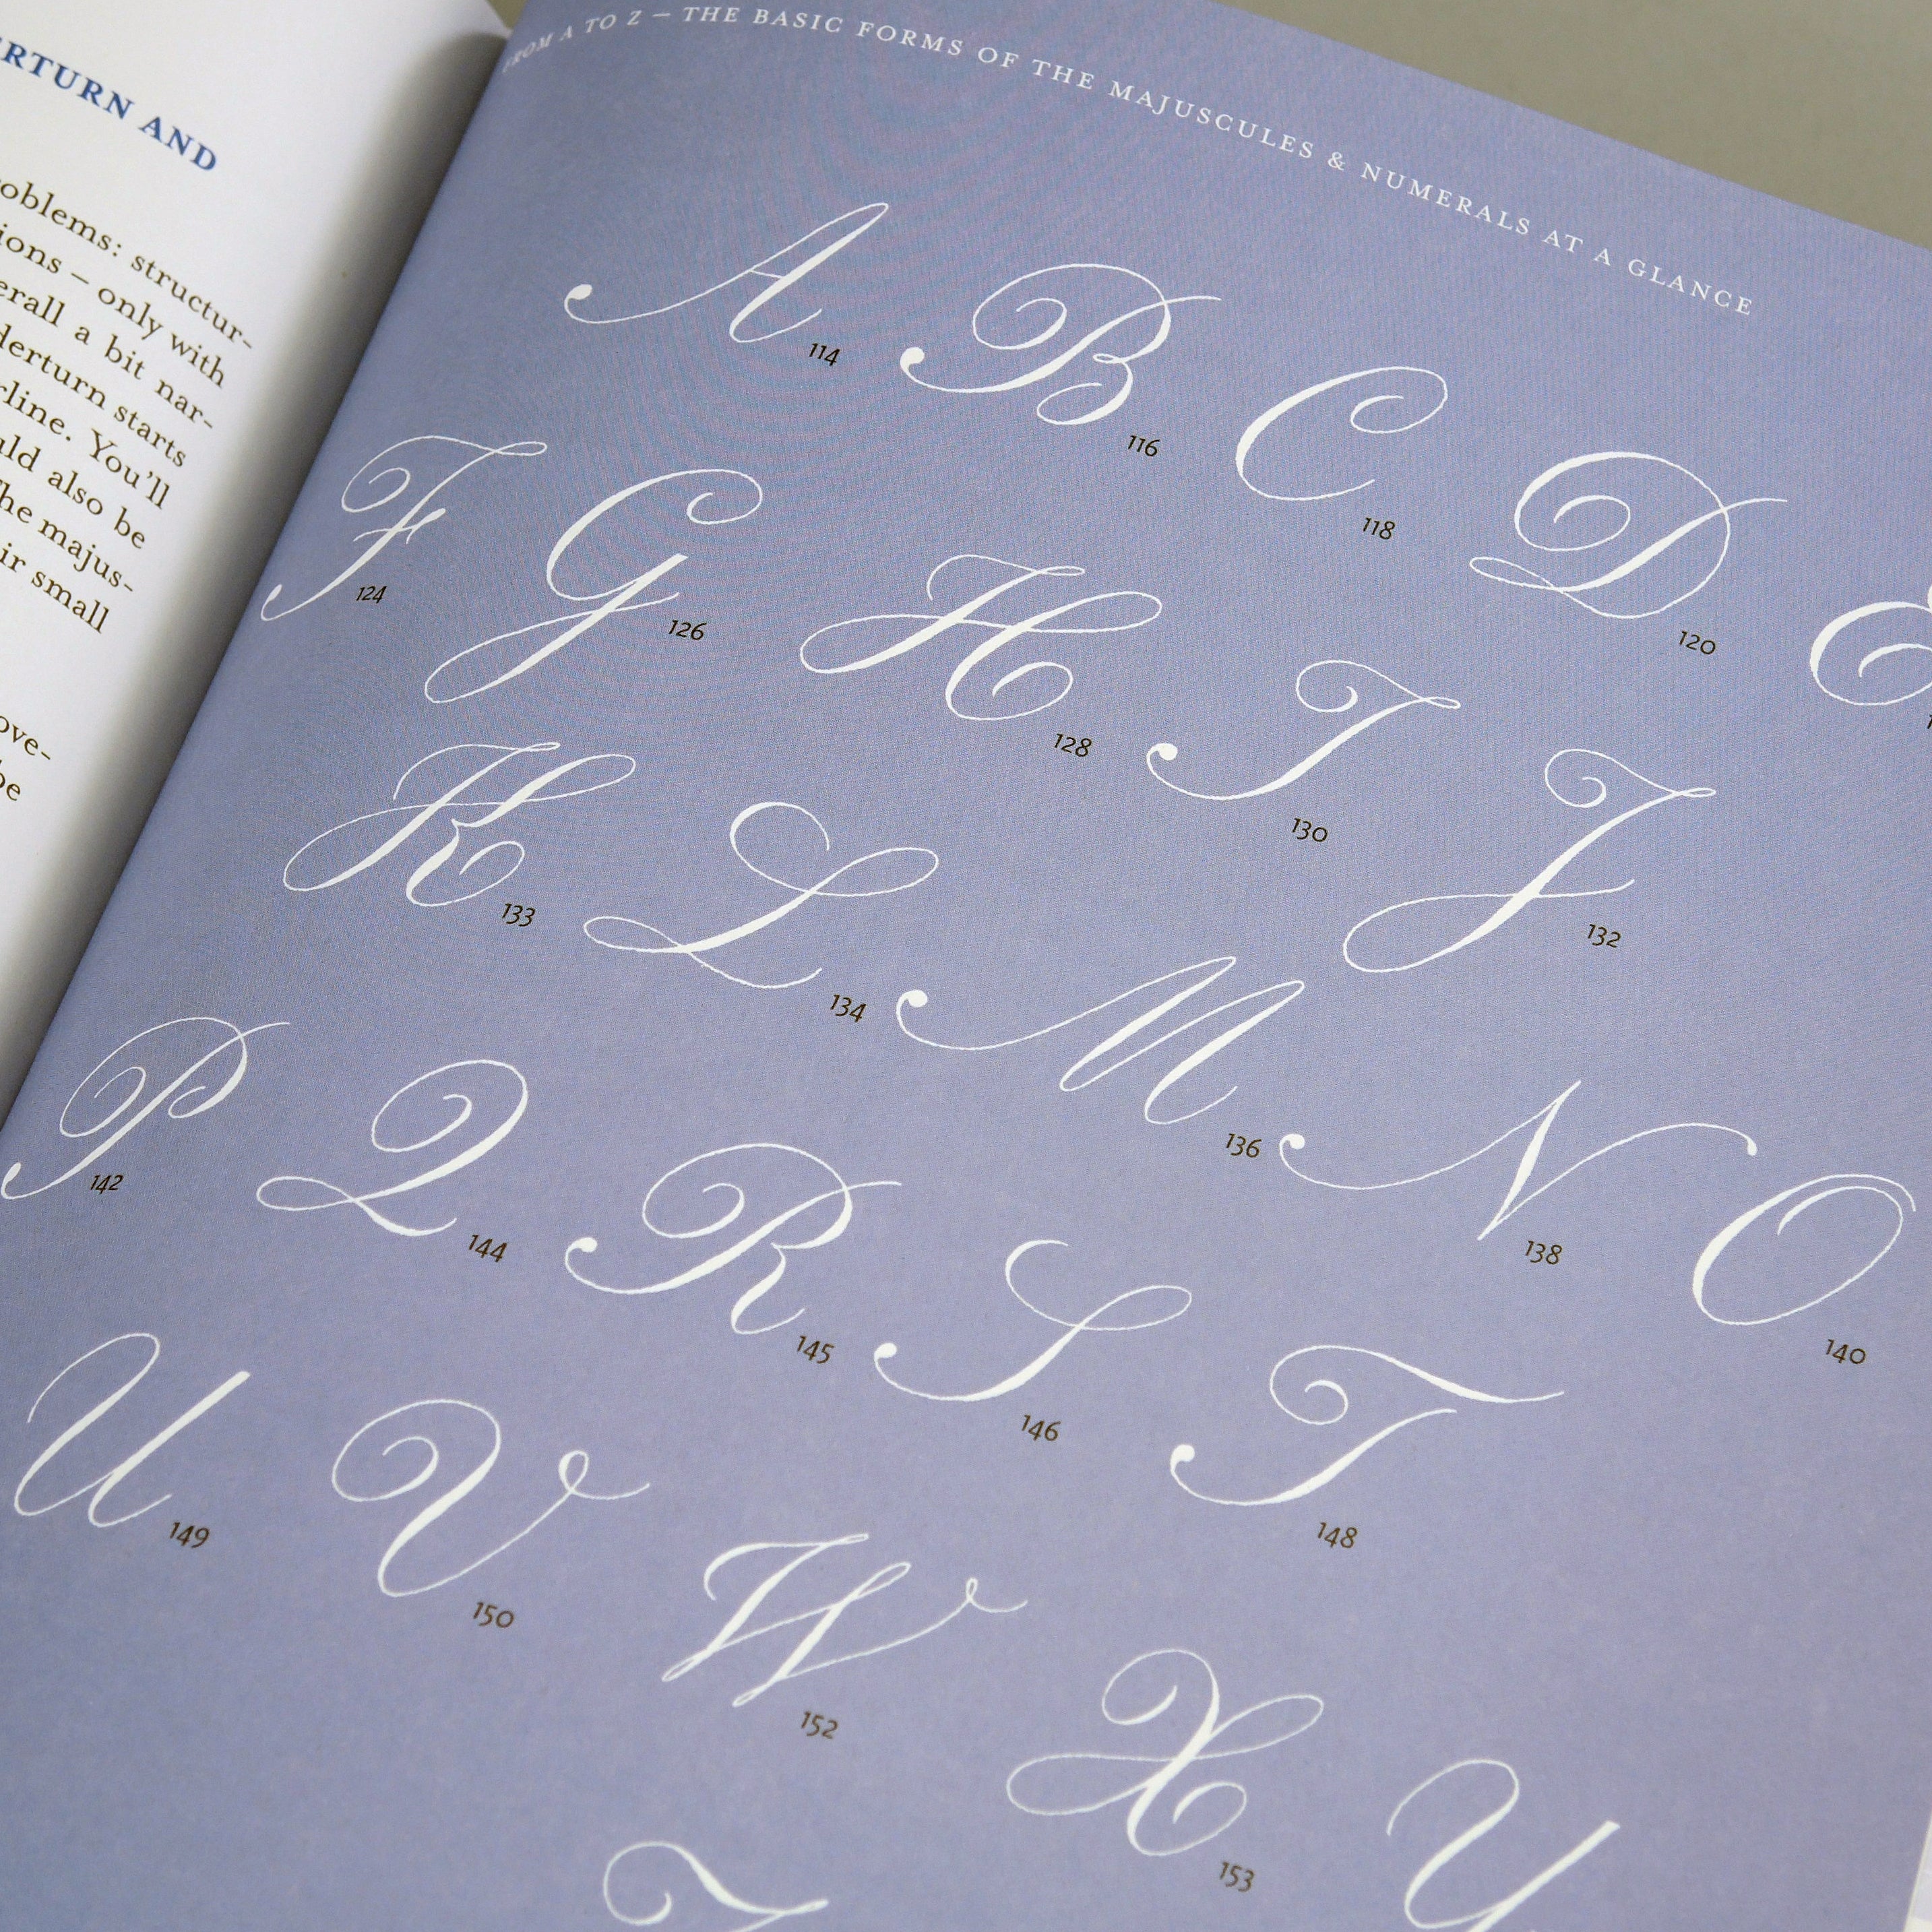 RTURN AND
oblems: structur-
ions – only with
erall a bit nar-
derturn starts
rline. You'll
uld also be
he majus-
ir small
ove-
be
FROM A TO Z – THE BASIC FORMS OF THE MAJUSCULES & NUMERALS AT A GLANCE
A 114 B 116 C 118 D 120 E
F 124 G 126 H 128 I 130 J 132
K 133 L 134 M 136 N 138 O 140
P 142 Q 144 R 145 S 146 T 148
U 149 V 150 W 152 X 153 Y
Z